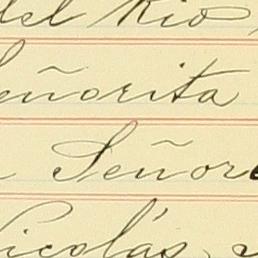 del Rio,
Señorita
Señor
Nicolás